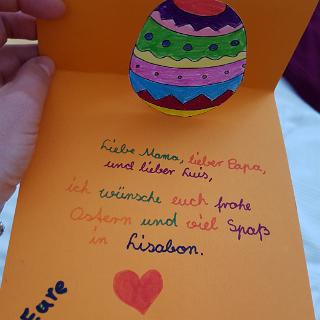 Liebe Mama, lieber Papa,
und lieber Luis,
ich wünsche euch frohe
Ostern und viel Spaß
in Lisabon.
Eure